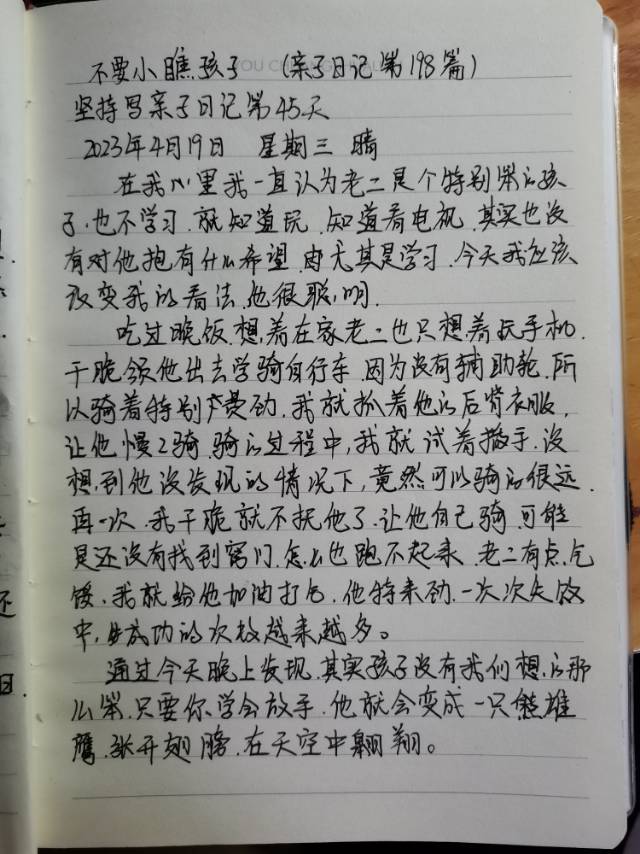 不要小瞧孩子 （亲子日记第198篇）
坚持写亲子日记第45天
2023年4月19日 星期三 晴
在我心里我一直认为老二是个特别笨的孩
子，也不学习，就知道玩，知道看电视，其实也没
有对他抱有什么希望，尤其是学习，今天我应该
改变我的看法，他很聪明。
吃过晚饭，想着在家老二也只想着玩手机，
干脆领他出去学骑自行车，因为没有辅助轮，所
以骑着特别费劲，我就抓着他的后背衣服，
让他慢慢骑，骑的过程中，我就试着撒手，没
想到他没发现的情况下，竟然可以骑的很远，
再一次，我干脆就不扶他了，让他自己骑，可能
是还没有找到窍门，怎么也跑不起来，老二有点气
馁，我就给他加油打气，他特来劲，一次次失败
中，成功的次数越来越多。
通过今天晚上发现，其实孩子没有我们想的那
么笨，只要你学会放手，他就会变成一只雄
鹰，张开翅膀，在天空中翱翔。